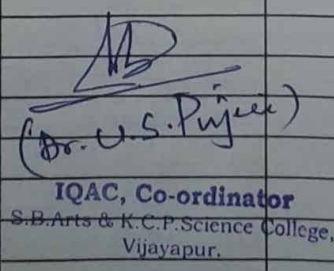 (Dr. U.S. Pujeri)
IQAC, Co-ordinator
S.B.Arts & K.C.P.Science College,
Vijayapur.